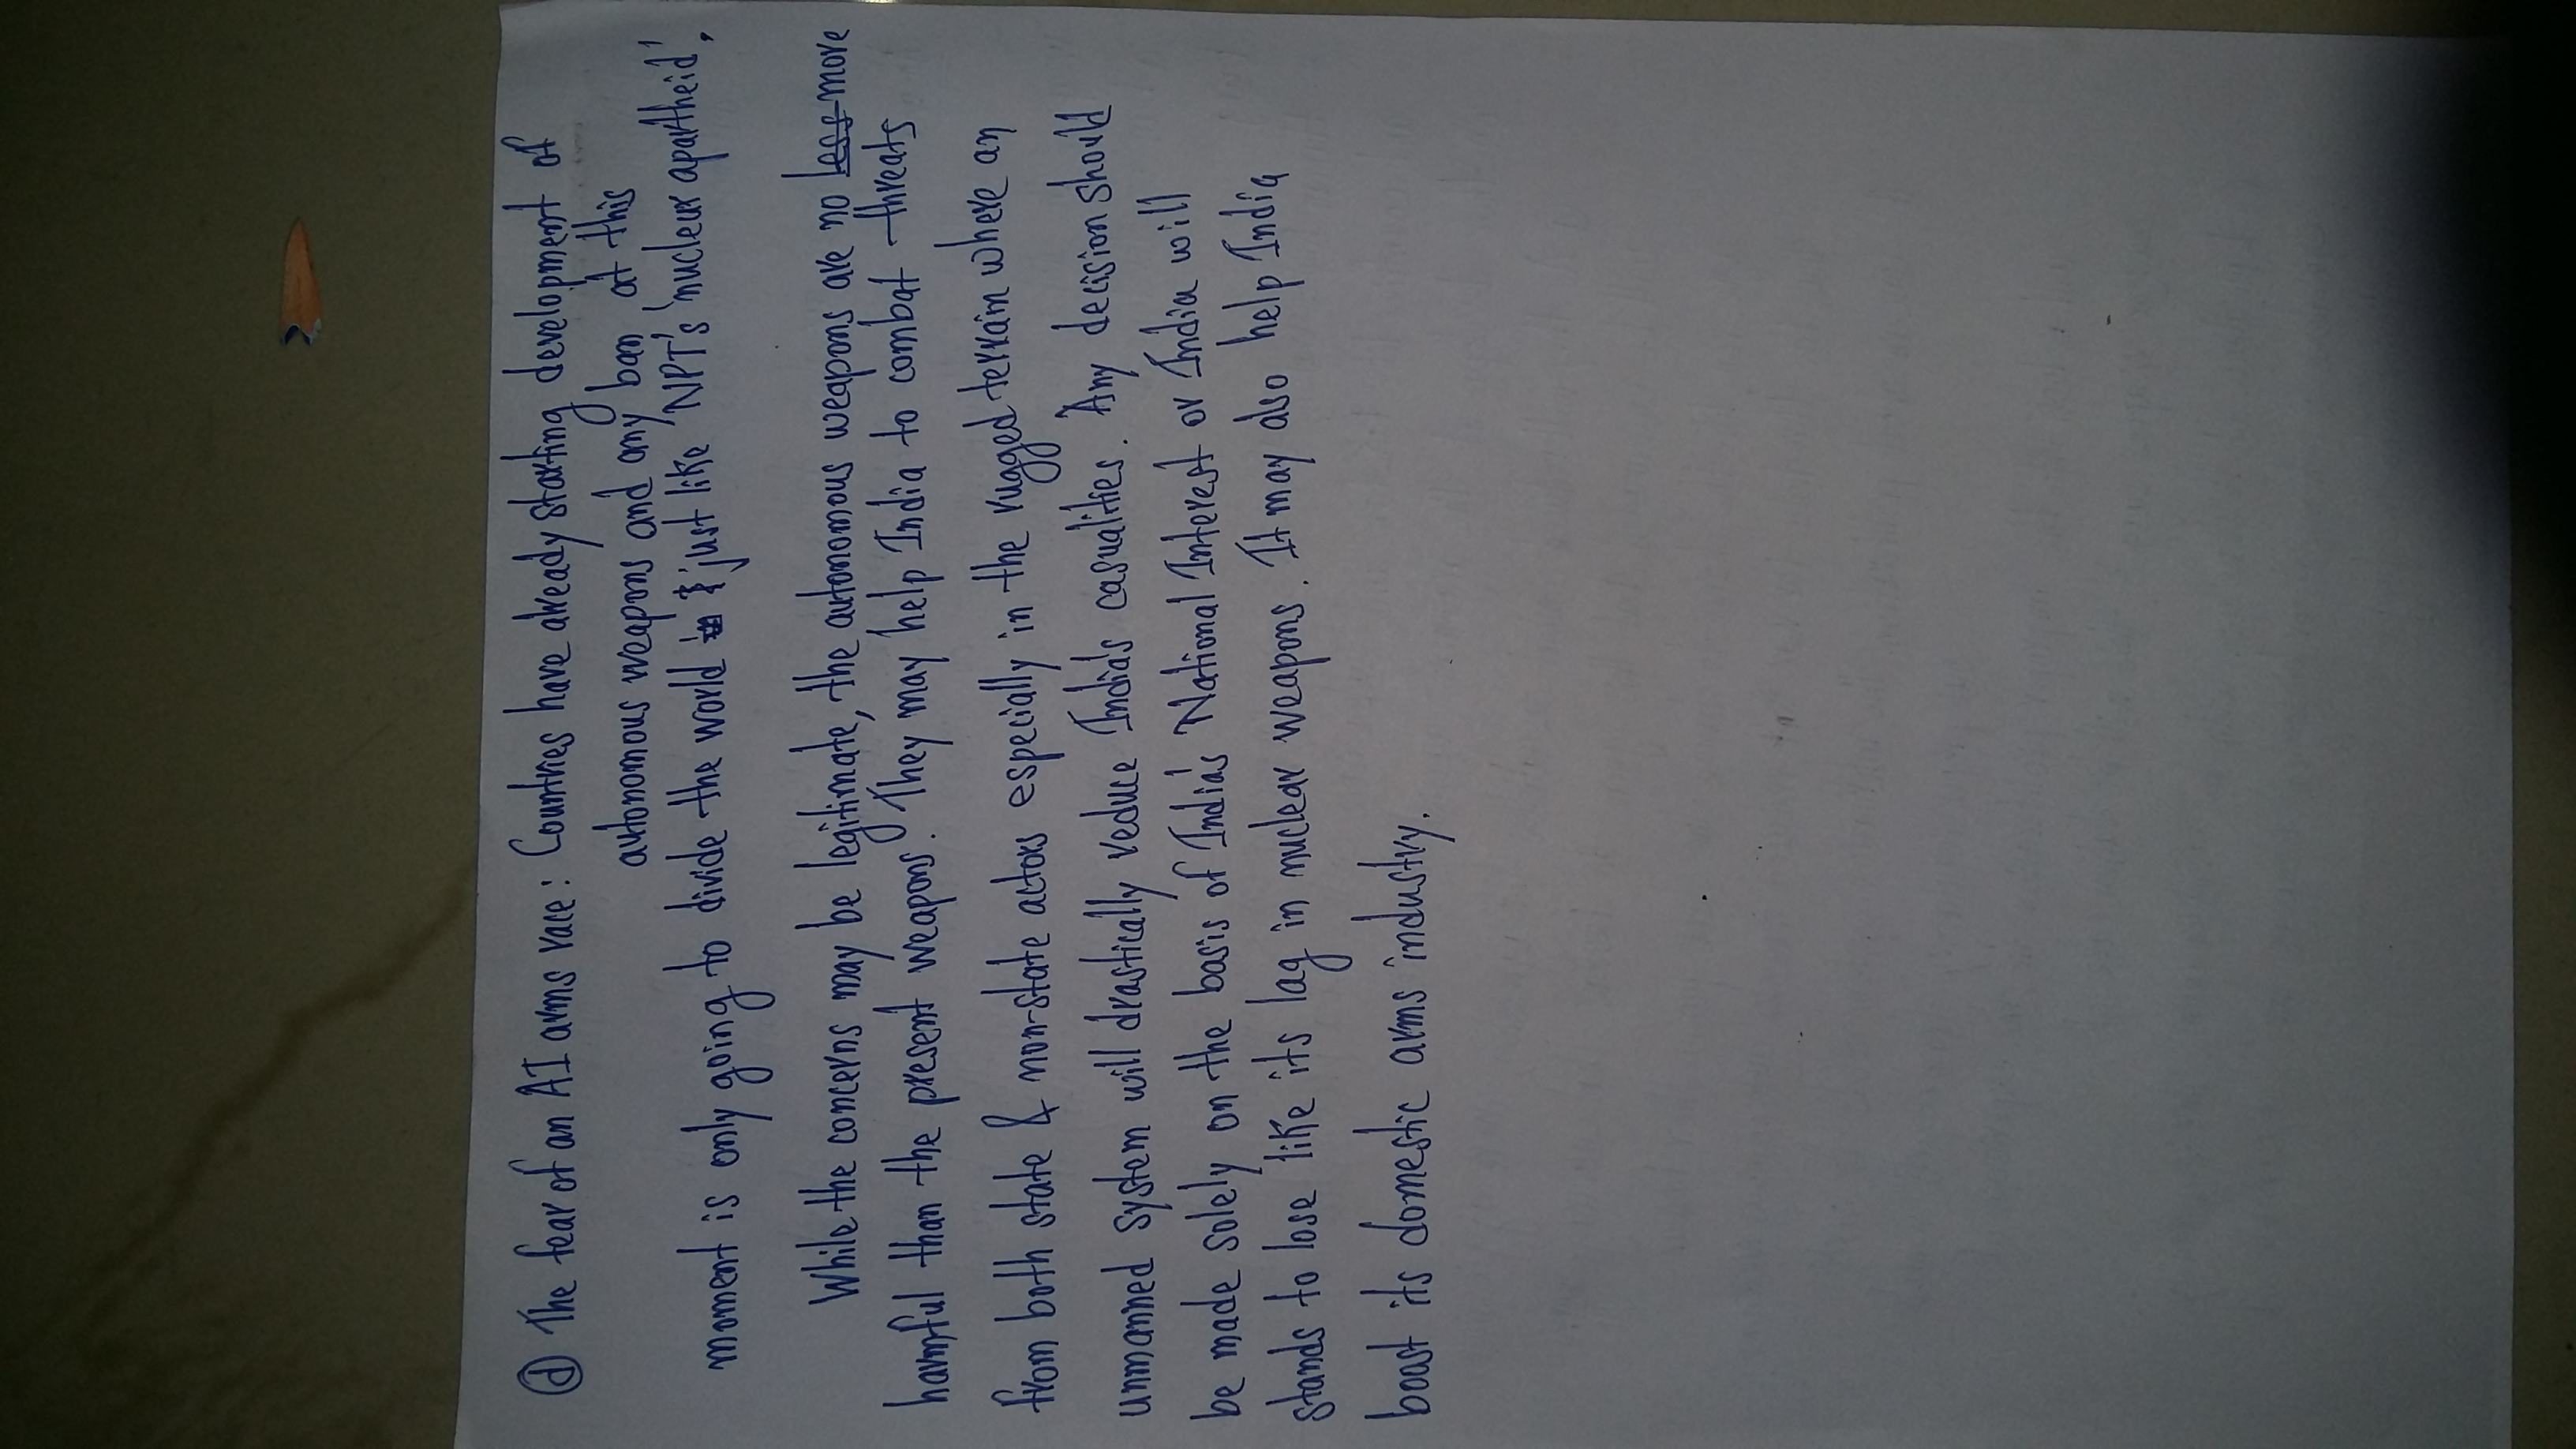 (d) The fear of an AI arms race: Countries have already starting development of
autonomous weapons and any ban at this
moment is only going to divide the world & just like NPT's 'nuclear apartheid',
While the concerns may be legitimate, the autonomous weapons are no less more
harmful than the present weapons. They may help India to combat threats
from both state & non-state actors especially in the rugged terrain where an
unmanned system will drastically reduce India's casualities. Any decision should
be made solely on the basis of India's National Interest or India will
stands to lose like its lag in nuclear weapons. It may also help India
boost its domestic arms industry.